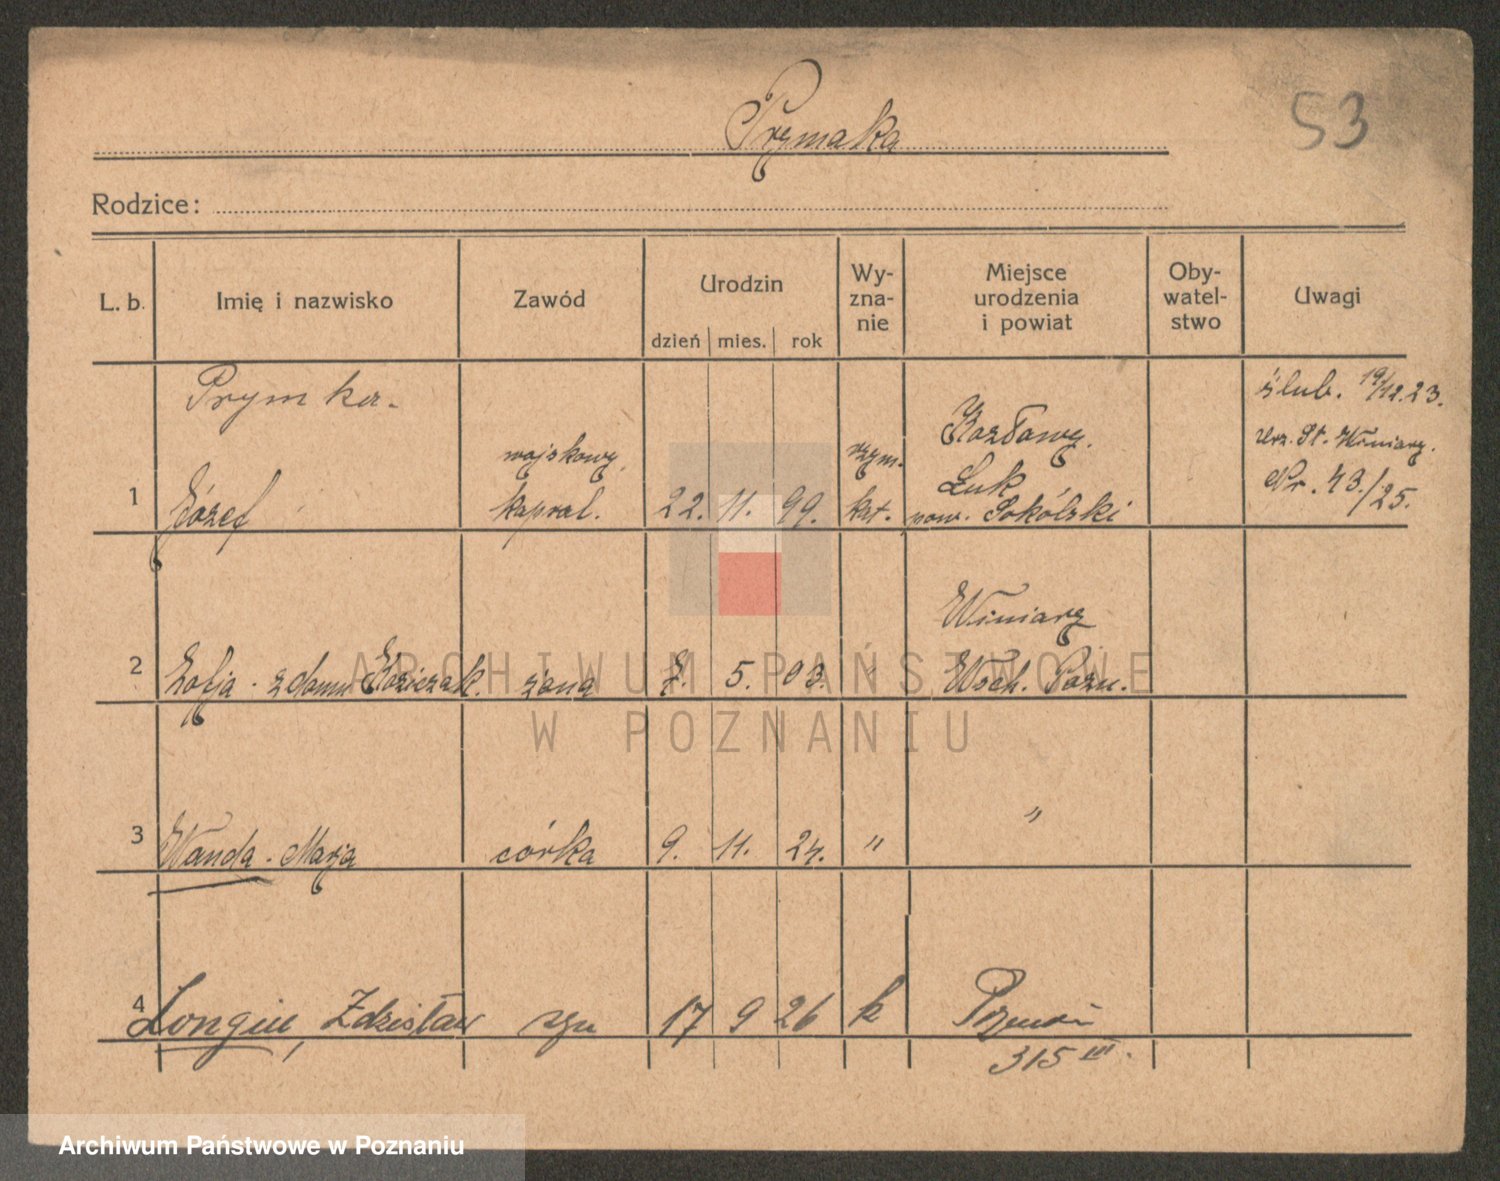 Prymaka
53
Rodzice:
L. b. Imię i nazwisko Zawód Urodzin dzień mies. rok Wy-zna-nie Miejsce urodzenia i powiat Oby-watel-stwo Uwagi
Prymka. ślub. 19/12.23.
wojskowy, rzym. Kozłowy. Urz. St. Winiary.
Łuk Nr. 43./25.
1 Józef kapral. 22. 11. 99. kat. pow. Sokólski
Winiary
2 Zofja - z domu żona 7. 5. 03. " Wsch. Pozn.
3 Wanda - Marja córka 9. 11. 24. " "
4 Longin, Zdzisław syn 17 9 26 k Poznań
315 III.
ARCHIWUM PAŃSTWOWE
W POZNANIU
Archiwum Państwowe w Poznaniu